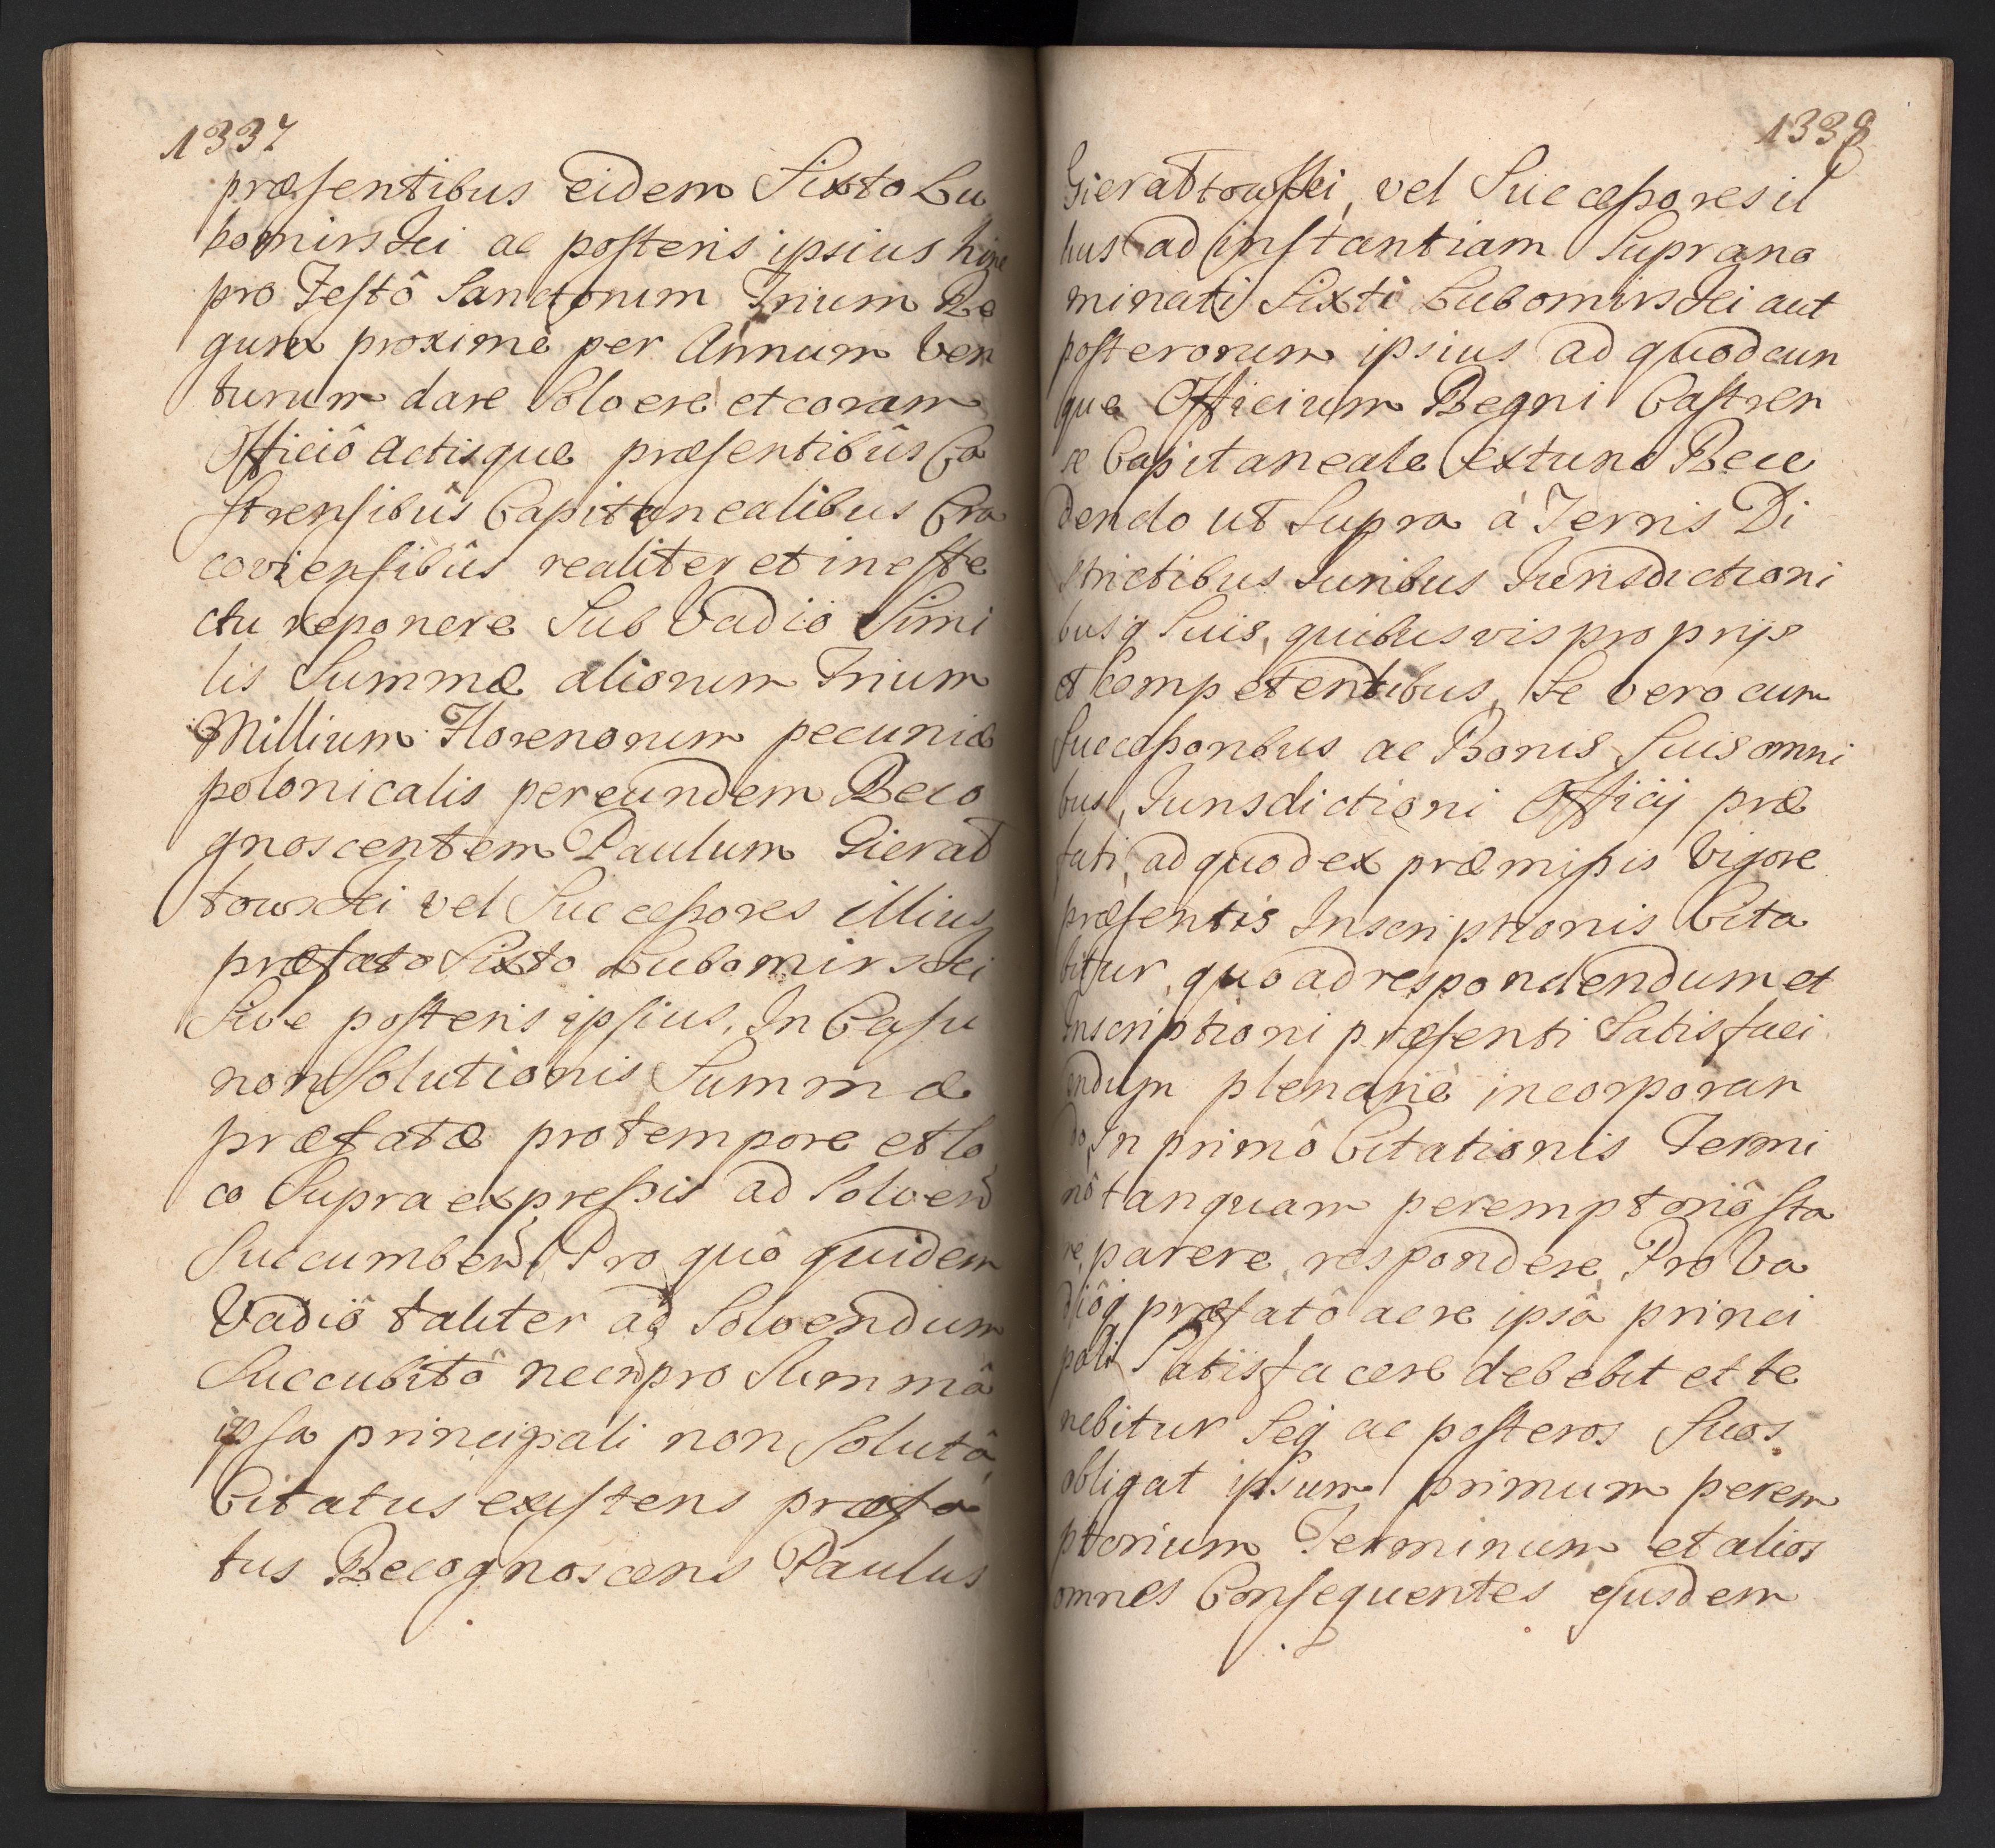 1337
præsentibus eidem Sixto Lu
bomirskei ac posteris ipsius hinc
pro Festô Sanctorum Trium Re
gum proximè per Annum Ven
turum dare Solvere et coram
Officiô Actisque præsentibûs Ca
strensibûs Capitanealibus Cra
coviensibûs realiter et in effe
ctu reponere Sub Vadiô Simi
lis Summæ aliorum Trium
Millium Florenorum pecuniæ
polonicalis per eundem Reco
gnoscentem Paulum Gierat
towskei vel Successores illius
præfato Sixto Lubomirskei
Sive posteris ipsius, In Casu
non Solutionis Summæ
præfatæ pro tempore et lo
co Supra expressis ad Solven
Succumben Pro quô quidem
Vadiô taliter ad Solvendum
Succubitô necnon pro Summâ
ipsa principali non Solutâ
Citatus existens præfa
tus Recognoscens Paulus
1338
Gierattowskei, vel Successores il
lius ad instantiam Suprano
minati Sixti Lubomirskei aut
posterorum ipsius ad quodcun
que Officium Regni Castren
se Capitaneale extunc Rece
dendo ut Supra à Terris Di
strictibus Juribus Jurisdictioni
busq Suis, quibusvis proprijs
et Competentibus, Se vero cum
Successoribus ac Bonis Suis omni
bus, Jurisdictioni Officij præ
fati, ad quod ex præmissis Vigore
præsentis Inscriptionis Cita
bitur, quo ad respondendum et
Inscriptioni præsenti Satisfaci
endum plenariè incorporan
do, In primô Citationis Termi
nô tanquam peremptoriô sta
re, parere, respondere, Pro Va
diôq præfatô ac re ipsâ princi
pali Satisfacere debebit et te
nebitur Seq ac posteros Suos
obligat ipsum primum perem
ptorium Terminum et alios
omnes Consequentes ejusdem